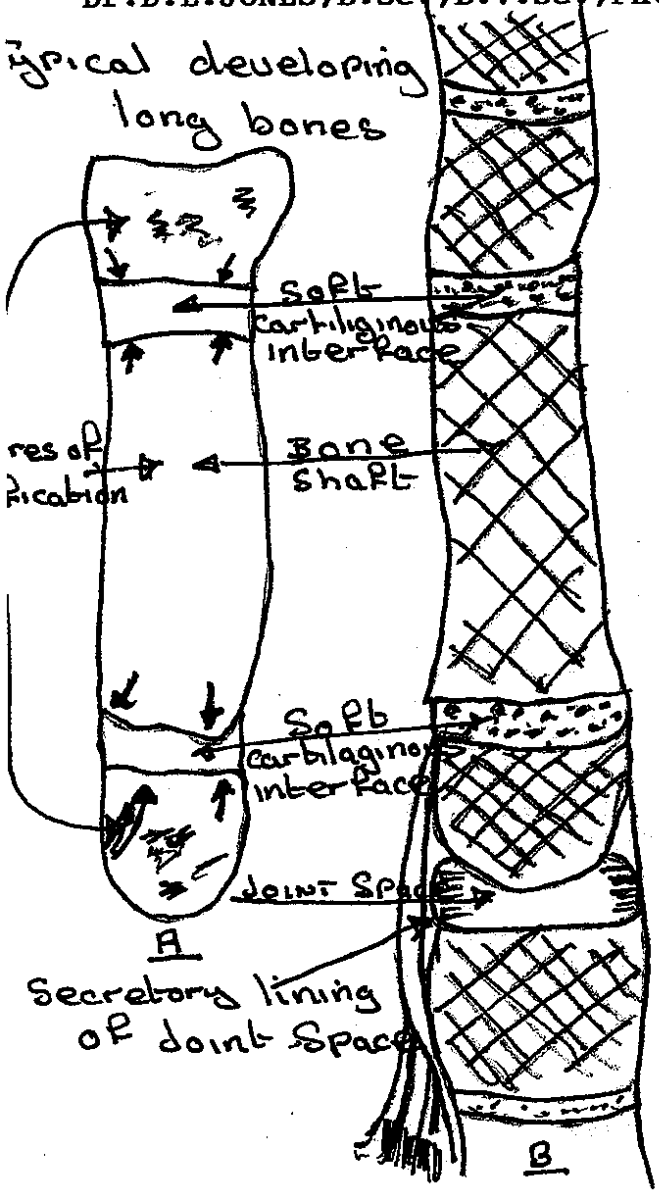 Typical developing
long bones
Soft
cartiliginous
interface
res of
fication
Bone
Shaft
Soft
cartilaginous
interface
Joint Space
A
Secretory lining
of Joint Space
B